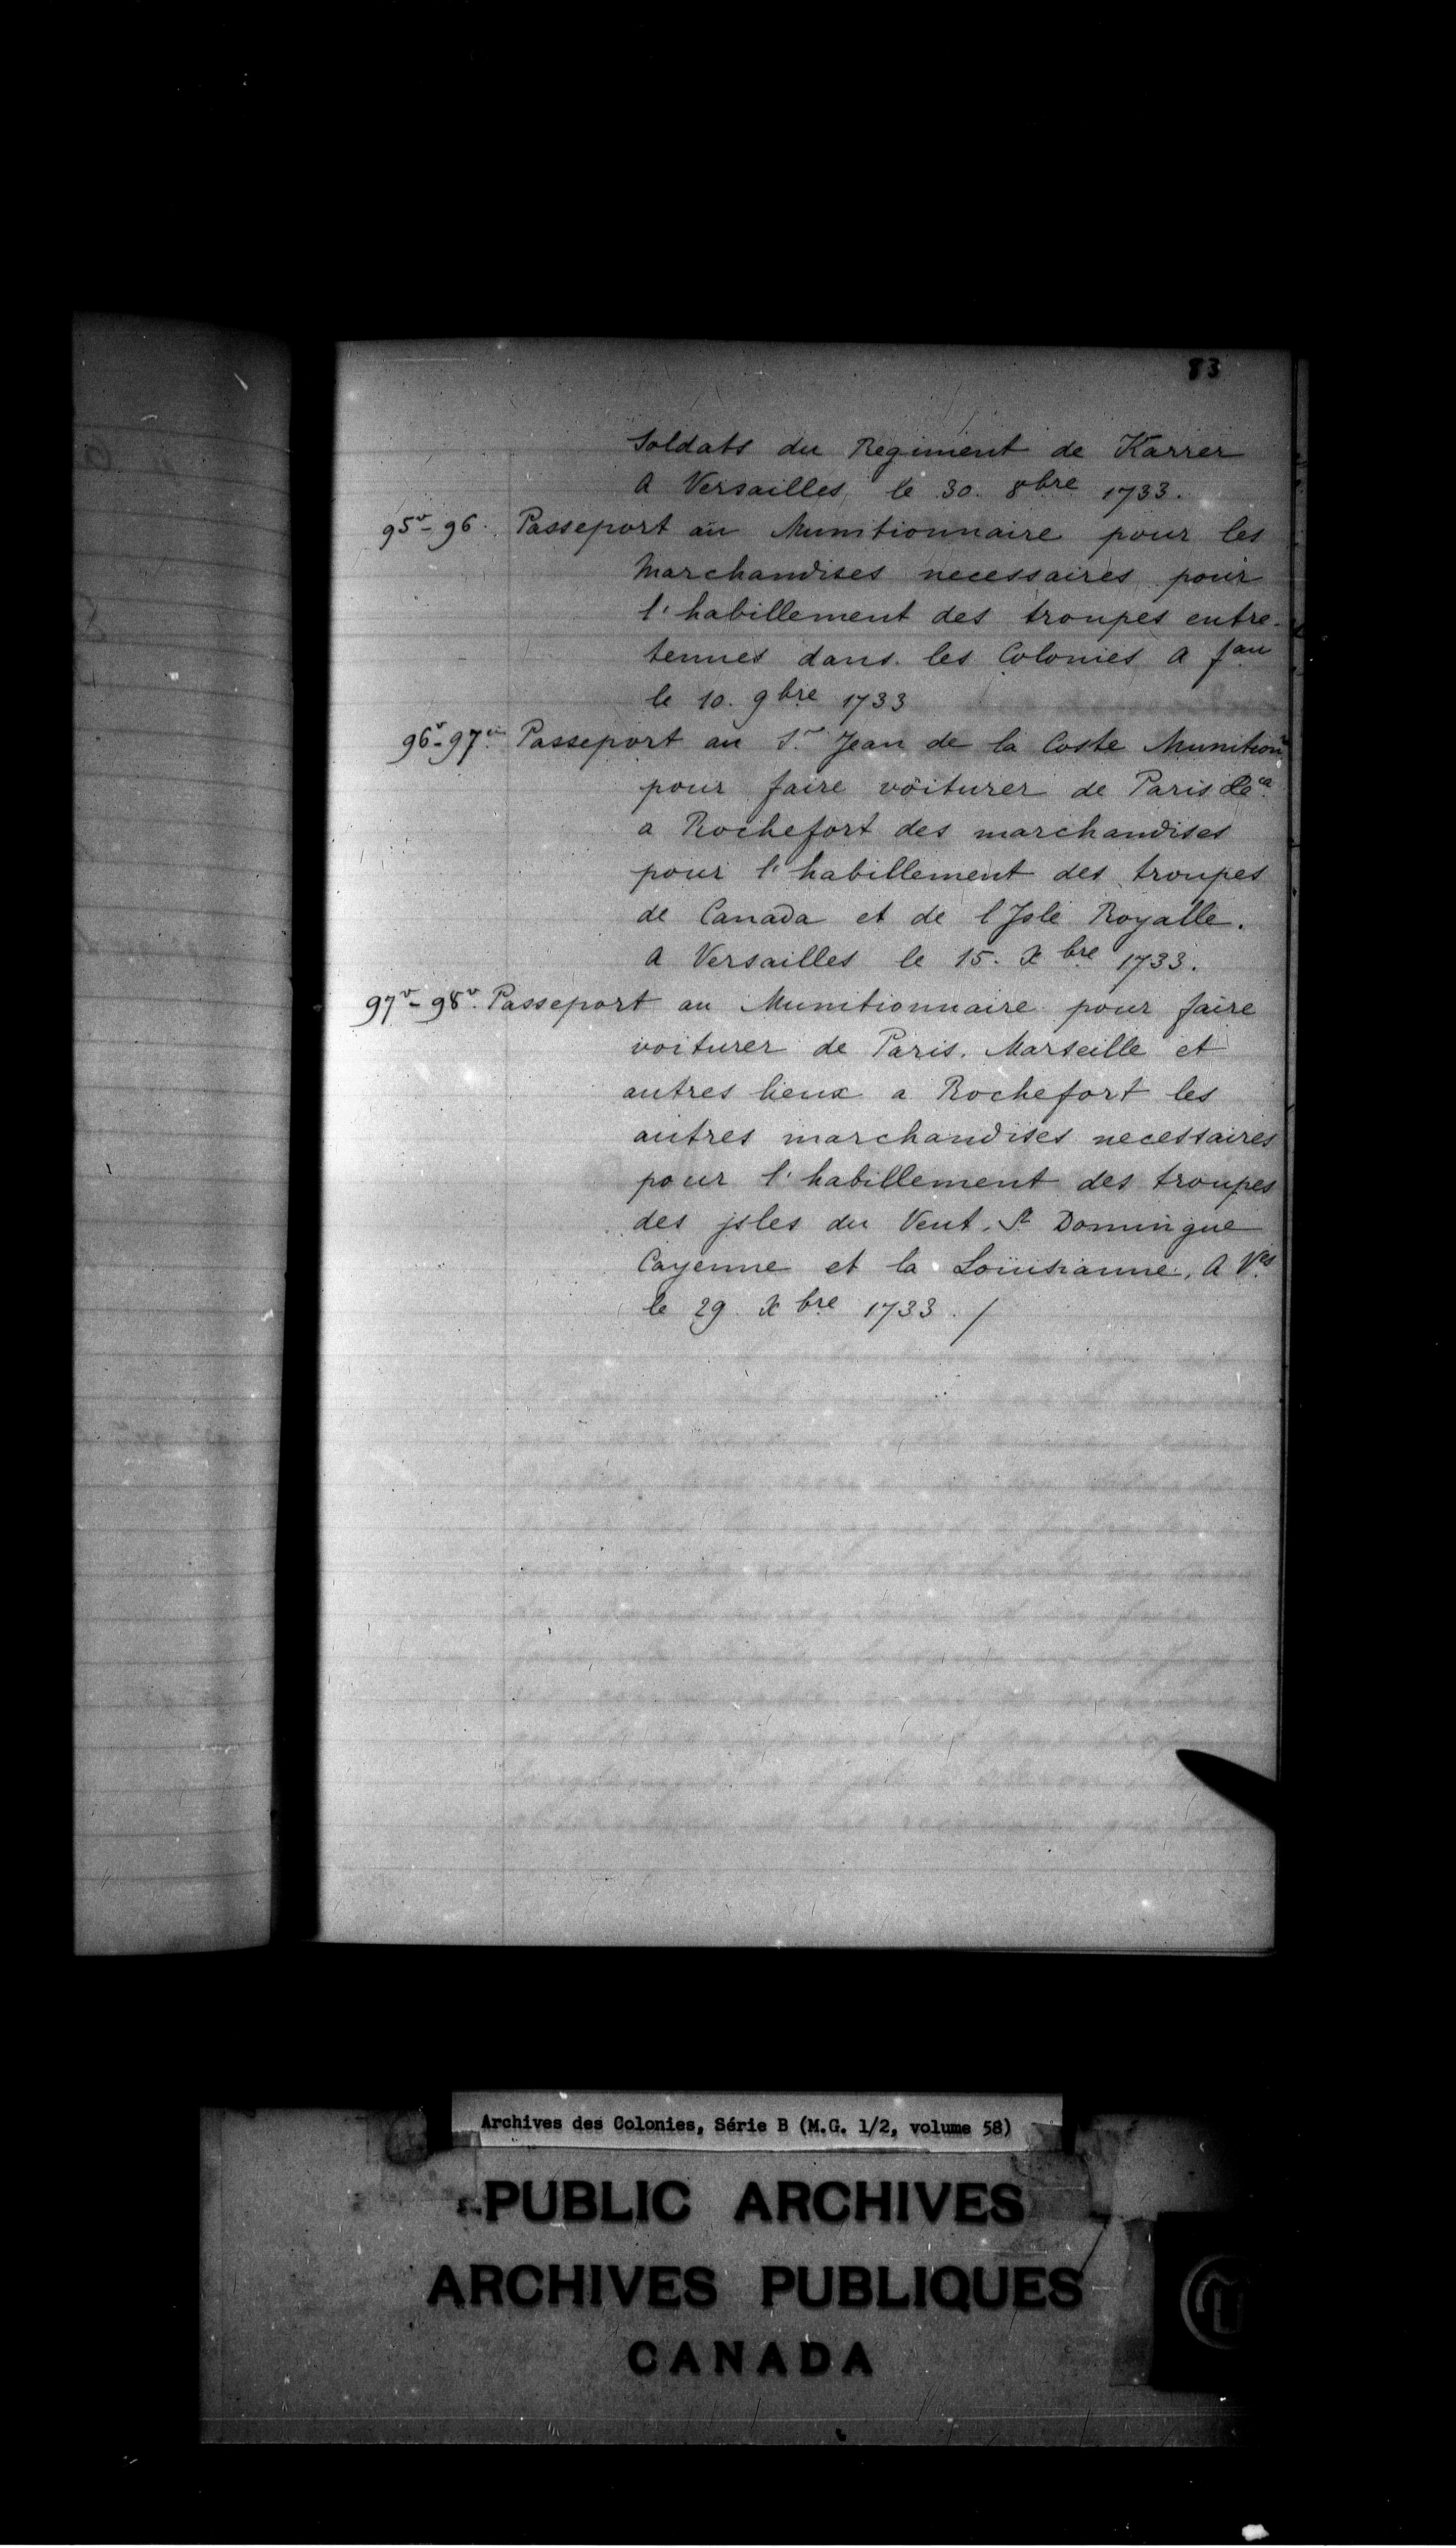 83
Soldats du Regiment de Karrer
A Versailles, le 30. 8bre 1733.
95v-96. Passeport au Munitionnaire pour les
Marchandises necessaires pour
l'habillement des troupes entre-
tenues dans les Colonies A fau
le 10. 9bre 1733
96v-97v. Passeport au Sr Jean de la Coste Munition
pour faire voiturer de Paris
a Rochefort des marchandises
pour l'habillement des troupes
de Canada et de l'Isle Royalle.
A Versailles le 15. Xbre 1733.
97v-98v. Passeport au Munitionnaire pour faire
voiturer de Paris. Marseille et
autres lieux a Rochefort les
autres marchandises necessaires
pour l'habillement des troupes
des jsles du Vent, St Domingue
Cayenne et la Loüisianne, A Ves
le 29 Xbre 1733 ./
Archives des Colonies, Série B (M.G. 1/2, volume 58)
PUBLIC ARCHIVES
ARCHIVES PUBLIQUES
CANADA